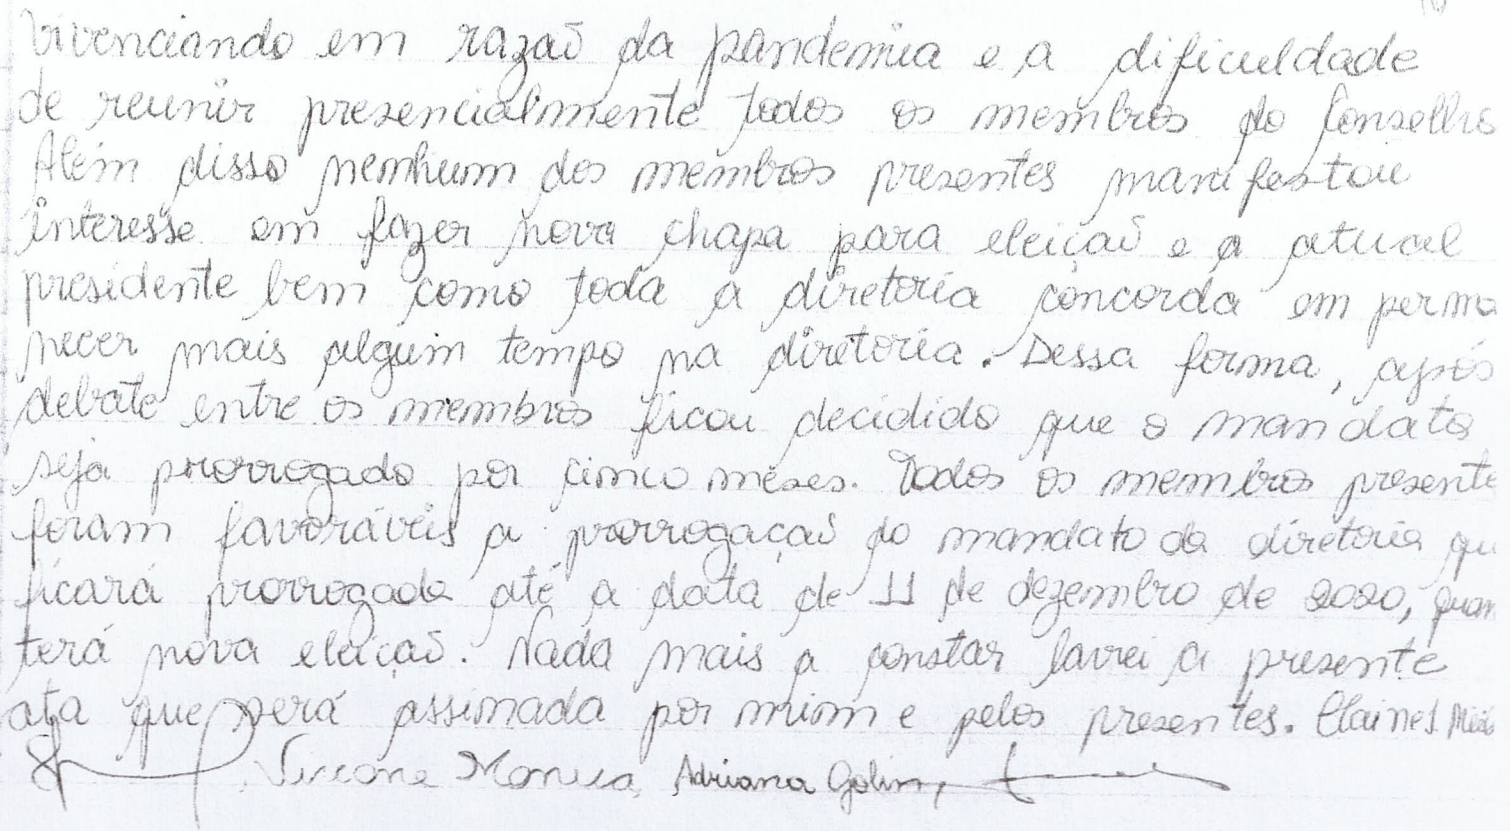 vivenciando em razaõ da pandemia e a dificuldade
de reunir presencialmente todos os membros do Conselho
Além disso nenhum dos membros presentes manifestou
interesse em fazer nova chapa para eleiçaõ e a atual
presidente bem como toda a diretoria concorda em perma
necer mais algum tempo na diretoria. Dessa forma, após
debate entre os membros ficou decidido que o mandato
seja prorrogado por cinco meses. Todos os membros presente
foram favoráveis a prorrogaçaõ do mandato da diretoria qu
ficará prorrogada até a data de 11 de dezembro de 2020, quan
terá nova eleiçaõ. Nada mais a constar lavrei a presente
ata que será assinada por mim e pelos presentes.
Adriana Golin,